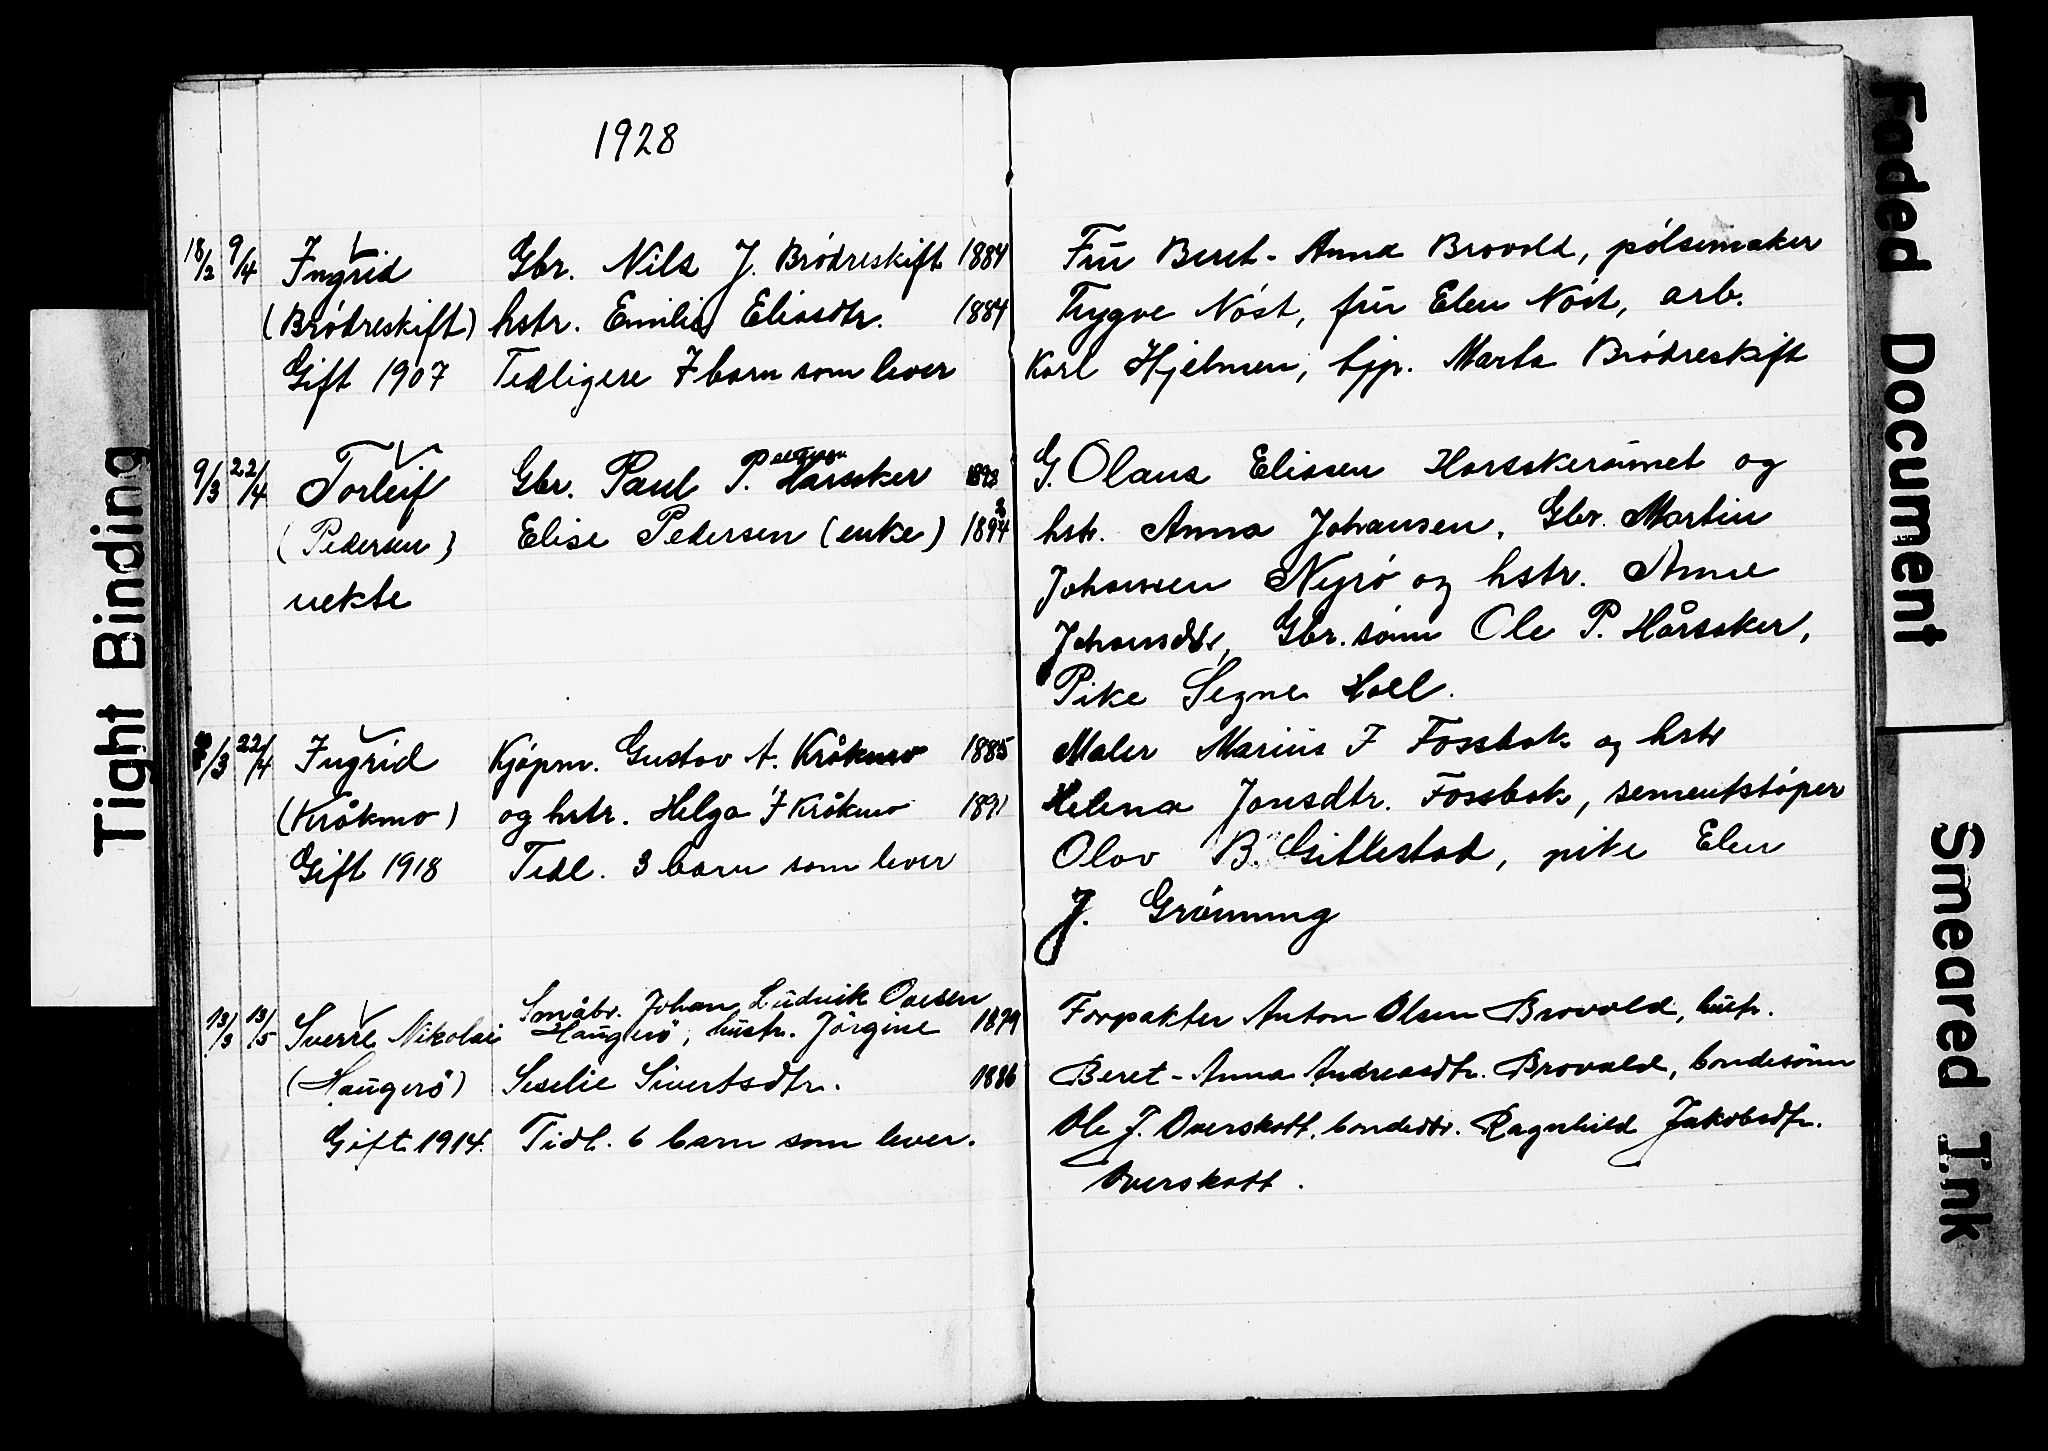 1928
18/2 9/4 Ingrid Gbr. Nils J. Brödreskift 1884
(Brödreskift) hstr. Emilie Eliasdtr. 1884
Gift 1907 Tidligere 7 barn som lever
Fru Beret-Anna Brovold, pölsemaker
Trygve Nöst, fru Elen Nöst, arb.
Karl Hjelmen, hjp. Marta Brödreskift
9/3 22/4 Torleif Gbr. Paul P. Harsaker
(Pedersen) Elise Pedersen (enke) 1894
uekte
G. Olaus Eliasen Harsakeraunet og
hstr. Anna Johansen. Gbr. Martin
Johansen Nyrö og hstr. Anne
Johansdtr, Gbr. sönn Ole P. Hårsaker,
Pike Segne Hoel.
8/3 22/4 Ingrid Kjöpm. Gustav A. Kråkmo 1885
(Kråkmo) og hstr. Helga J Kråkmo 1891
Gift 1918 Tidl. 3 barn som lever
Maler Marius J Fossbak og hstr
Helena Jonsdtr. Fossbak, sementstöper
Olav B. Gillestad, pike Elen
J. Grönning
13/3 13/5 Sverre Nikolai Småbr. Johan Ludvik Ovesen
Haugerö, hustr. Jörgine 1879
(Haugerö) Seselie Sivertsdtr. 1886
Gift 1914. Tidl. 6 barn som lever.
Forpakter Anton Olsen Brovold, hustr.
Beret-Anna Andreasdtr. Brovold, bondesönn
Ole J. Overskott, bondedtr. Ragnhild Jakobsdtr.
Overskott.
Tight Binding
Faded Document
Smeared Ink